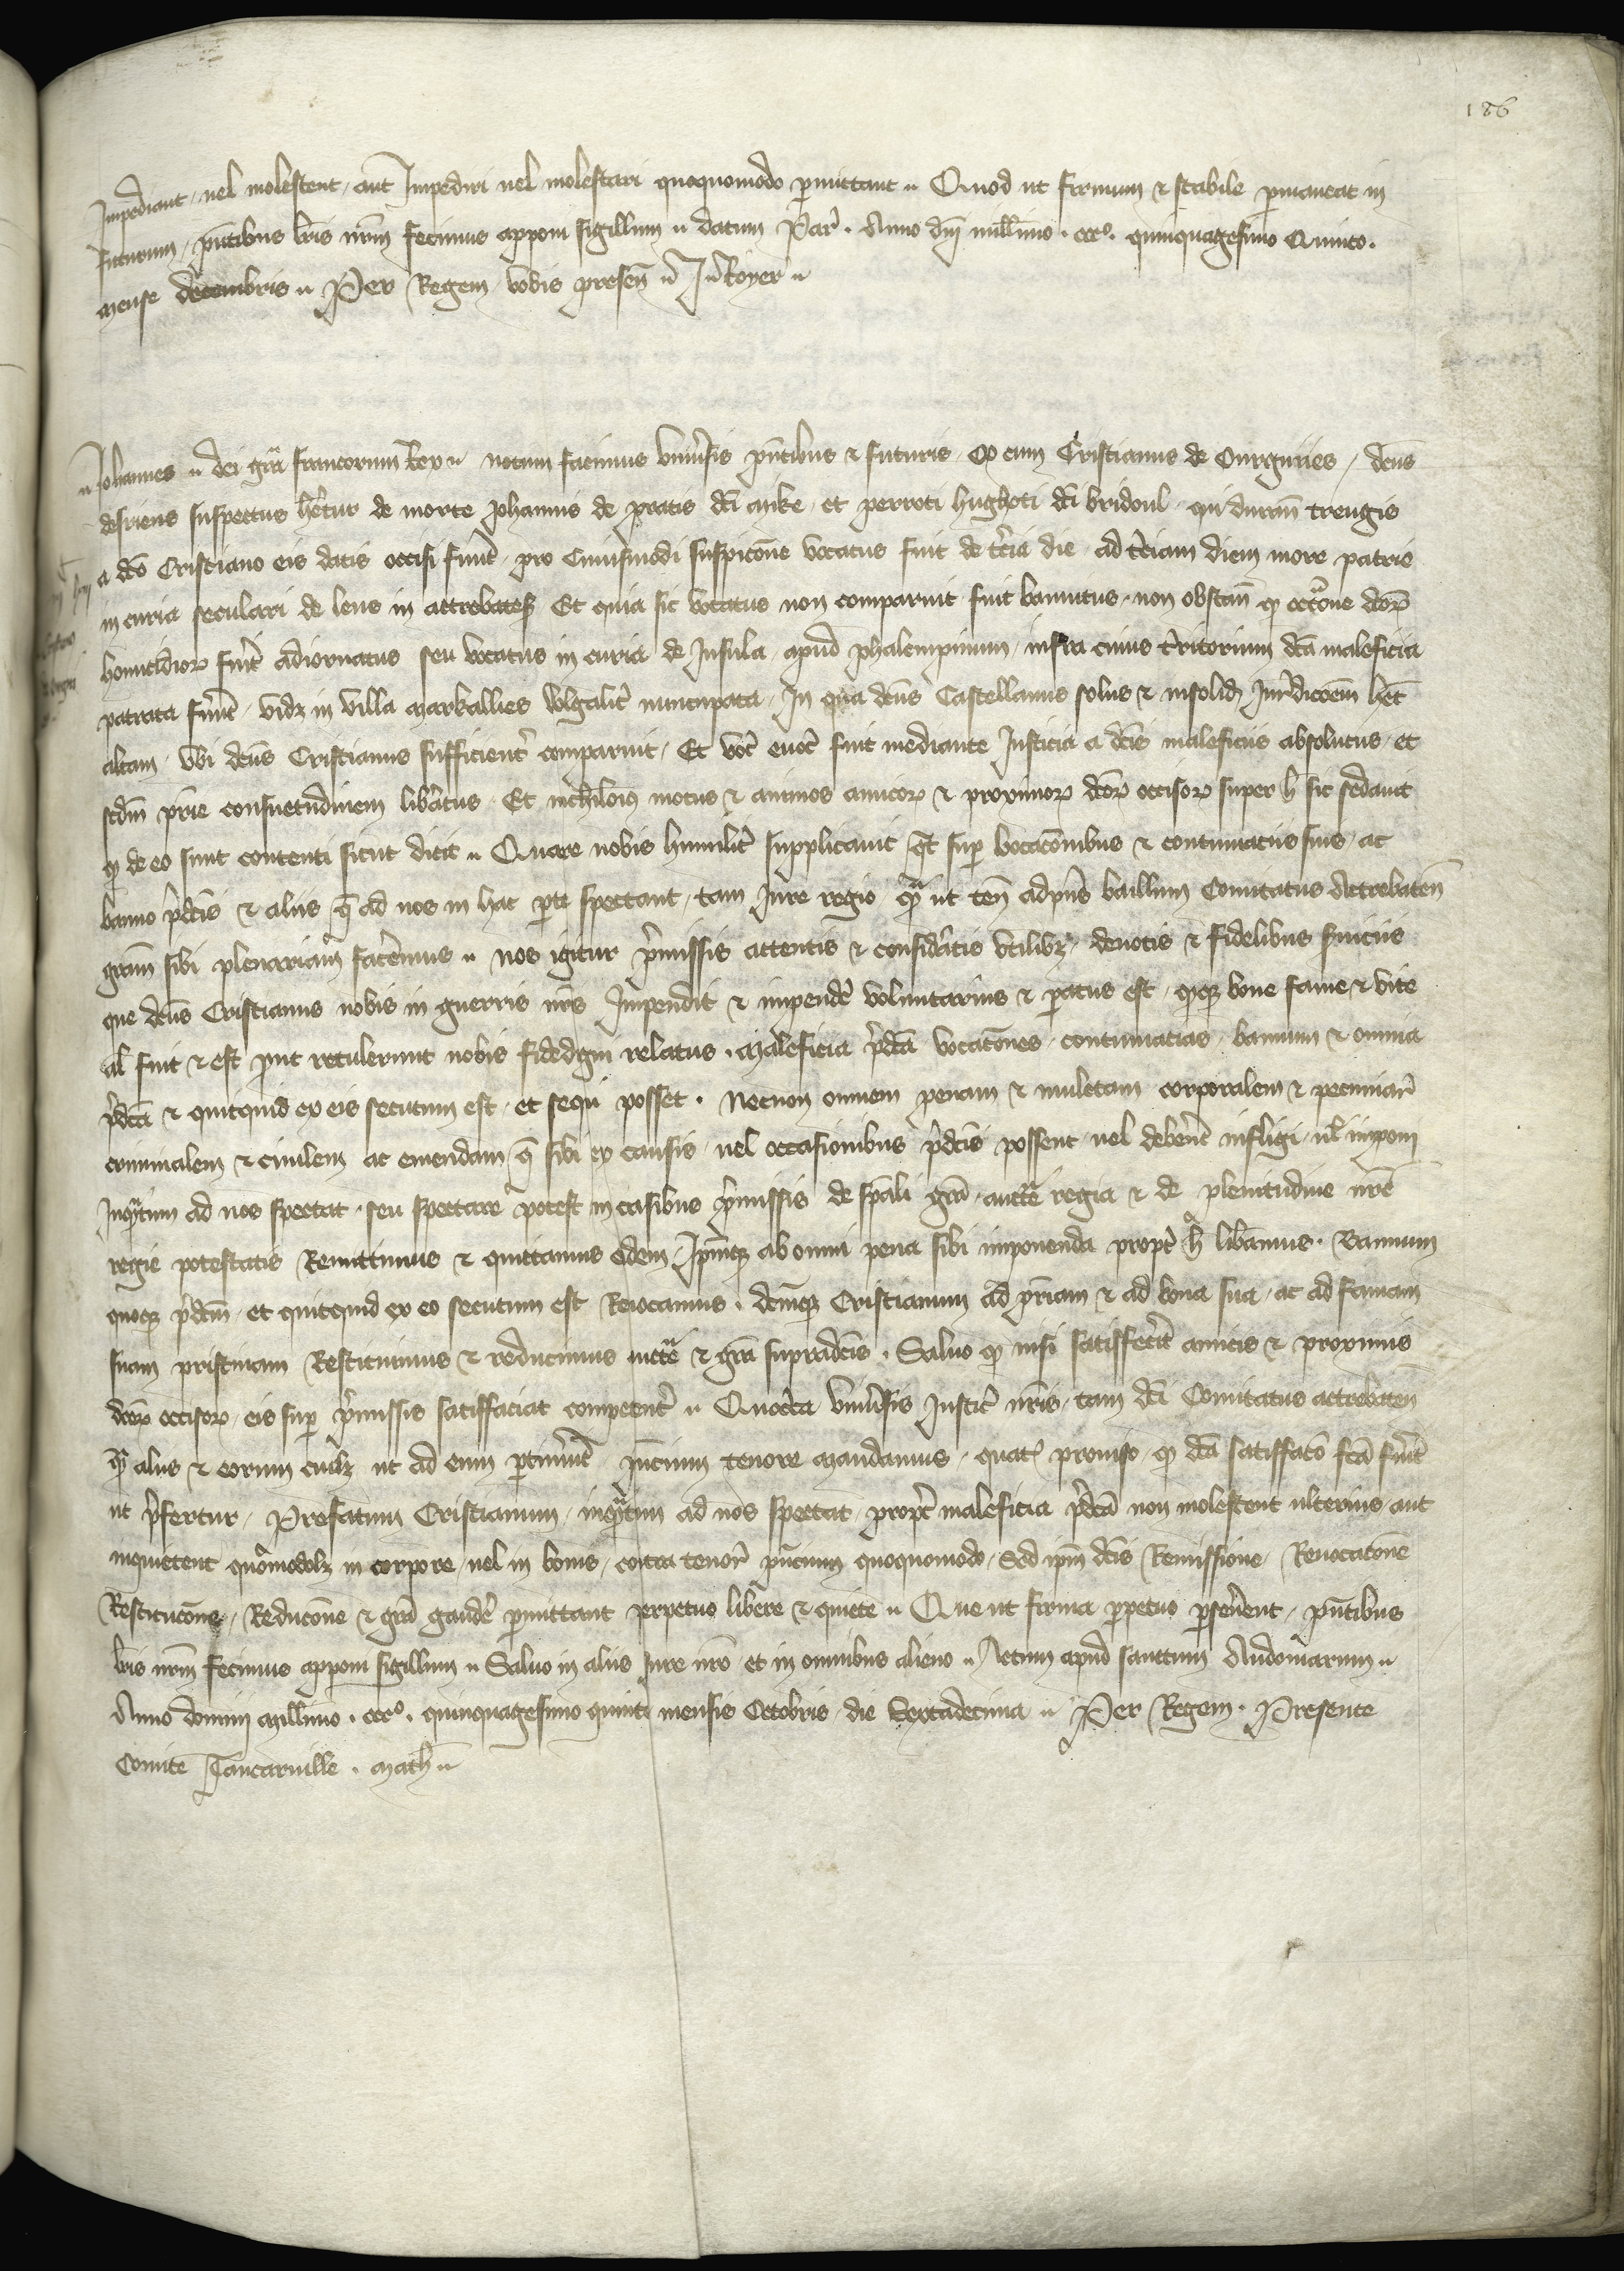 186
Impediant, uel molestent, aut Impediri uel molestari quoquomodo ꝑmittant ·· Quod ut firmum ⁊ stabile ꝑmaneat in
futurum, pn̄tibus lr̄is nr̄m fecimus apponi sigillum ·· datum Par̄ · Anno dn̄i mill̄imo · cccº · quinquagesimo Quinto ·
mense decembris ·· Per Regem vobis presen̄ ·· Royer ··
Johannes ·· dei gr̄a francorum Rex ·· notum facimus vniu̓sis pn̄tibus ⁊ futuris, q̱ cum Cristianus de dc̄us
suspectus hr̄etur de morte Johannis de pratis dc̄i Mike, et perroti hughoti dc̄i bridoul, qui duran̄ treugis
a dc̄o Cristiano eis datis occisi fuer̄t, pro cuiusmodi suspicōne vocatus fuit de tc̄ia die ad tc̄iam diem more patrie
in curia seculari de lens in attrebateſ Et quia sic vocatus non comparuit fuit bannitus, non obstan̄ q̱ occ̄one dc̄oꝝ
homicidioꝝ fuer̄t adiornatus seu vocatus in curia de Insula, apud phalempinum, infra cuius tr̄ritorium dc̄a maleficia
patrata fuer̄t, vidꝫ in villa Markallies vlgalit̓ nuncupata, In qua dc̄us Castellanus solus ⁊ insolidꝫ Iur̄dicc̄oem hēt
altam, vbi dc̄us Cristianus sufficient̓ comparuit, Et fuit mediante Iusticia a dc̄is maleficiis absolutus, et
scdm̄ pr̄ie consuetudinem lib̓atus, Et nichilōiꝰ motus ⁊ animos amicoꝝ ⁊ proximoꝝ dc̄oꝝ occisoꝝ super h̄ sic sedauit
q̱ de eo sunt contenti sicut dicit ·· Quare nobis humilit̓ supplicauit q̄t suꝑ vocacōnibus ⁊ contumaciis suis, ac
banno p̓dc̄is ⁊ aliis q̄ ad nos in hac ꝑte spectant, tam Iure regio, q̱ͣ ut ten̄ adpn̄s baillum Comitatus Attrebaten̄
gr̄am sibi plenariam fac̓emus ·· nos igitur p̓missis attentis ⁊ consid̓atis vtilibꝫ, deuotis ⁊ fidelibus s̓uiciis
que dc̄us Cristianus nobis in guerris nr̄is Impendit ⁊ impend̓e voluntarius ⁊ ꝑatus est, q̱qꝫ bone fame ⁊ vite
al̄ fuit ⁊ est ꝓut retulerunt nobis fidedigni relatus · Maleficia p̓dc̄a vocacōnes, contumacias, bannum ⁊ omnia
p̓dc̄a ⁊ quicquid ex eis secutum est, et sequi posset · Necnon omnem penam ⁊ mulctam corporalem ⁊ pecuniar̄
criminalem ⁊ ciuilem ac emendam q̄ sibi ex causis, uel occasionibus p̓dc̄is possent, uel deber̄et infligi, ul̄ imponi
Inq̱ͣtum ad nos spectat, seu spectare potest in casibus p̓missis de sp̄ali gr̄a, auctt̄e regia ⁊ de plenitudine nr̄e
regie potestatis Remittimus ⁊ quittamus eidem, Ipm̄qꝫ ab omni pena sibi imponenda propt̓ h̄ lib̓amus · Bannum
quoqꝫ p̓dc̄m, et quicquid ex eo secutum est Reuocamus · dc̄mqꝫ Cristianum ad pr̄iam ⁊ ad bona sua, ac ad famam
suam pristinam Restituimus ⁊ reducimus auctt̄e ⁊ gr̄a supradc̄is · Saluo q̱ nisi satiffec̓it amicis ⁊ proximis
dc̄oꝝ occisoꝝ, eis suꝑ p̓missis satiffaciat competent̓ ·· Quoc̓ca vniu̓sis Iustic̓ nr̄is, tam dc̄i Comitatus attrebaten̄
q̱ͣ aliis ⁊ eorum cuilꝫ ut ad eum ꝑtinuer̄t pn̄cium tenore mandamus, quatꝰ prouiso, q̱ dc̄a satiffacc̄o fc̄a fuer̄t
ut p̓fertur, Prefatum Cristianum, inq̱ͣtum ad nos spectat, propt̓ maleficia p̓dc̄a non molestent ulterius, aut
inquietent quōmodolꝫ in corpore, uel in bonis, contra tenor̄ pn̄cium quoquomodo, Sed ipm̄ dc̄is Remissione, Reuocacōne
Restitucōne, Reducōne ⁊ gr̄a gaud̓e ꝑmittant perpetuo libere ⁊ quiete ·· Que ut firma ꝑpetuo ꝑseu̓ent, pn̄tibus
lr̄is nr̄m fecimus apponi sigillum ·· Saluo in aliis Iure nr̄o et in omnibus alieno ·· Actum apud sanctum Audomarum ··
Anno domini millimo · cccº · quinquagesimo quinto mensis Octobris, die Septadecima ·· Per Regem · Presente
Comite Tancaruille · Math̄ ··